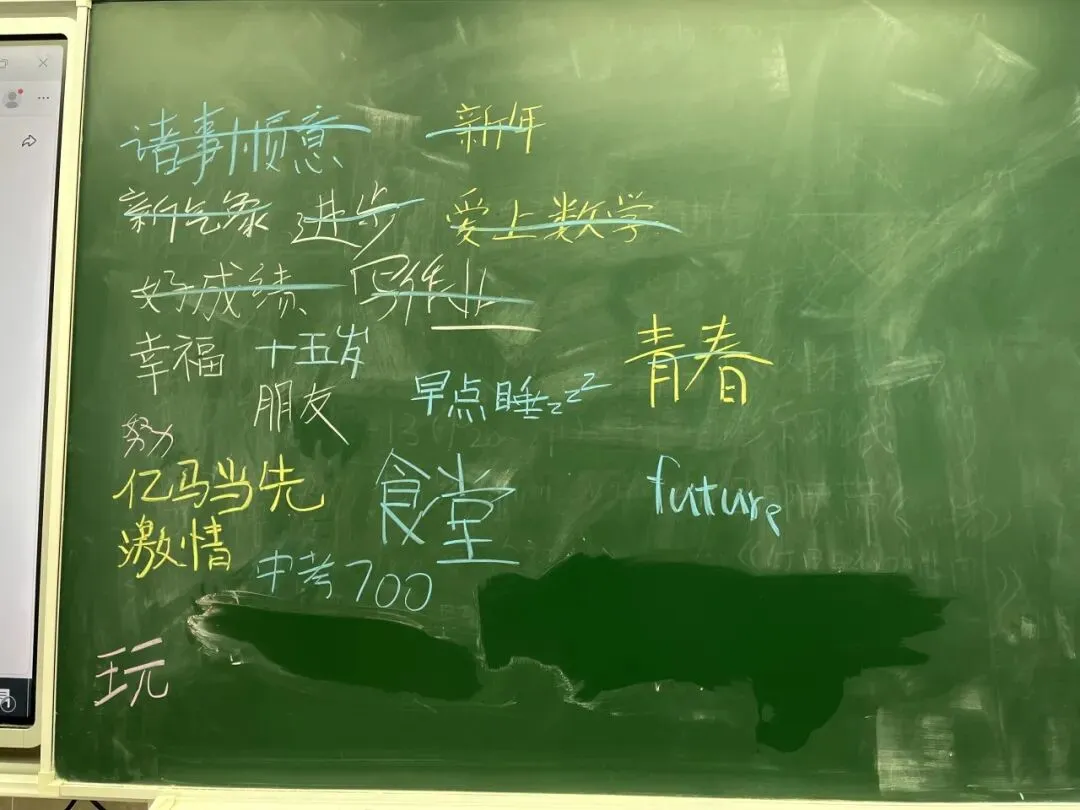 诸事顺意 新年
新气象 进步 爱上数学
好成绩 写作业
幸福 十五岁 青春
朋友 早点睡zzz
努力
亿马当先 食堂 future
激情
中考700
玩